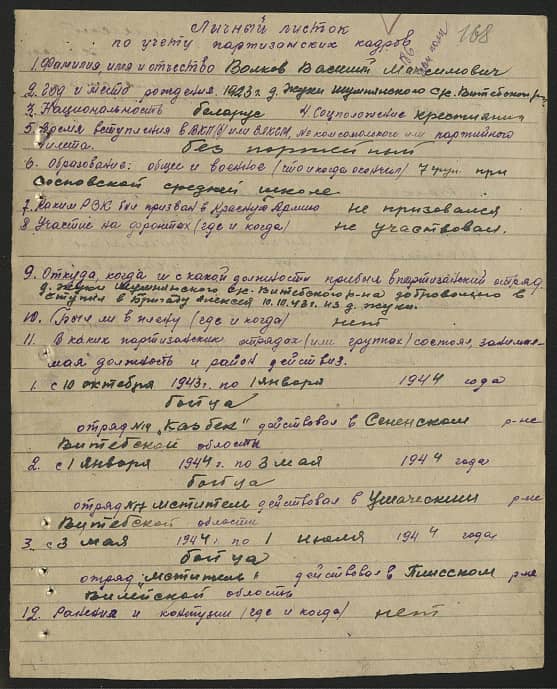 Личный листок 168
по учету партизанских кадров
1. Фамилия имя и отчество Волков Василий Максимович
2. Год и место рождения 1923 г. д. Жуки Шумлянского с/с. Витебского р-
3. Национальность беларус 4. Соцположение крестьянин
5. Время вступления в ВКП(б) или ВЛКСМ, № комсомольского или партийного
билета. беспартейный
6. Образование: общее и военное (что и когда окончил) 7 груп. при
Сосновской средней школе
7. Каким РВК был призван в Красную Армию не призовался
8. Участие на фронтах (где и когда) не участвовал.
9. Откуда, когда и с какой должности прибыл в партизанский отряд
д. Жуки Шумлянского с/с. Витебского р-на добровольно в
ступил в бригаду Алексея 10.10.43 г. из д. Жуки.
10. Был ли в плену (где и когда) нет
11. В каких партизанских отрядах (или группах) состоял, занимае-
мая должность и район действия.
1. с 10 октября 1943 г. по 1 января 1944 года
бойца
отряд №4 „Казбек" действовал в Сененском р-не
Витебской области
2. с 1 января 1944 г. по 3 мая 1944 года
бойца
отряд мститель действовал в Ушаческим р-не
Витебской области
3. с 3 мая 1944 г. по 1 июля 1944 года
бойца
отряд „мститель" действовал в Плисском р-не
Вилейской область
12. Ранения и контузии (где и когда) нет